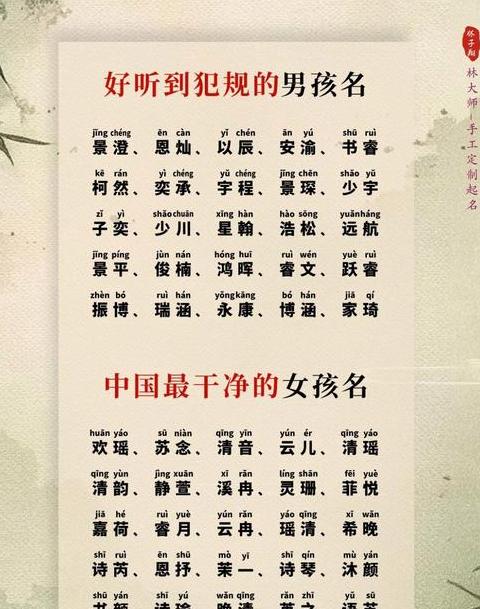 好听到犯规的男孩名
jǐng chéng ēn càn yǐ chén ān yú shū ruì
景澄、恩灿、以辰、安渝、书睿
kē rán yì chéng yǔ chéng jǐng chēn shào yǔ
柯然、奕承、宇程、景琛、少宇
zǐ yì shào chuān xīng hàn hào sōng yuǎn háng
子奕、少川、星翰、浩松、远航
jǐng píng jùn nán hóng huī ruì wén yuè ruì
景平、俊楠、鸿晖、睿文、跃睿
zhèn bó ruì hán yǒng kāng bó hán jiā qí
振博、瑞涵、永康、博涵、家琦
中国最干净的女孩名
huān yáo sū niàn qīng yīn yún ér qīng yáo
欢瑶、苏念、清音、云儿、清瑶
qīng yùn jìng xuān xī rǎn líng shān fēi yuè
清韵、静萱、溪冉、灵珊、菲悦
jiā hé ruì yuè yún rǎn yáo qīng xī wǎn
嘉荷、睿月、云冉、瑶清、希晚
shī ruì ēn shū mò yī shī qín mù yán
诗芮、恩抒、茉一、诗琴、沐颜
shū yán shī yú wǎn qīng rǎn zhī yǔ sū
林大师－手工定制起名